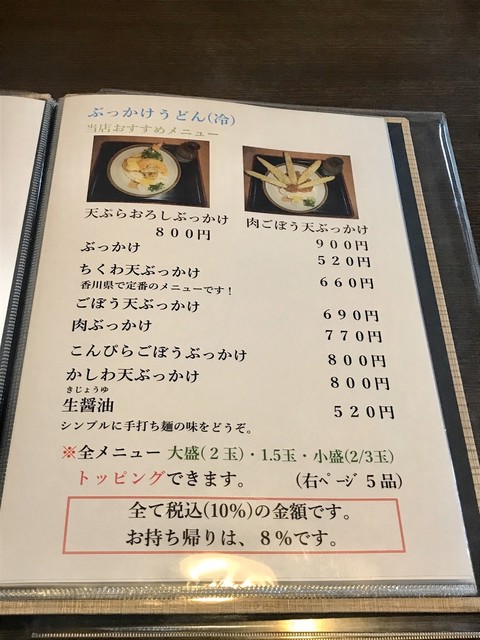 ぶっかけうどん(冷)
当店おすすめメニュー
天ぷらおろしぶっかけ 800円
肉ごぼう天ぶっかけ 900円
ぶっかけ 520円
ちくわ天ぶっかけ 660円
香川県で定番のメニューです!
ごぼう天ぶっかけ 690円
肉ぶっかけ 770円
こんぴらごぼうぶっかけ 800円
かしわ天ぶっかけ 800円
きじょうゆ
生醤油 520円
シンプルに手打ち麺の味をどうぞ。
※全メニュー 大盛(2玉)・1.5玉・小盛(2/3玉)
トッピングできます。 (右ページ5品)
全て税込(10%)の金額です。
お持ち帰りは、8%です。